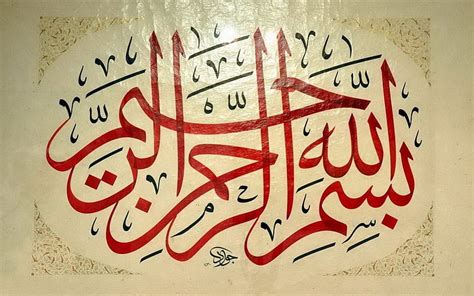 بِسْمِ اللهِ الرَّحْمٰنِ الرَّحِيْمِ
جواد